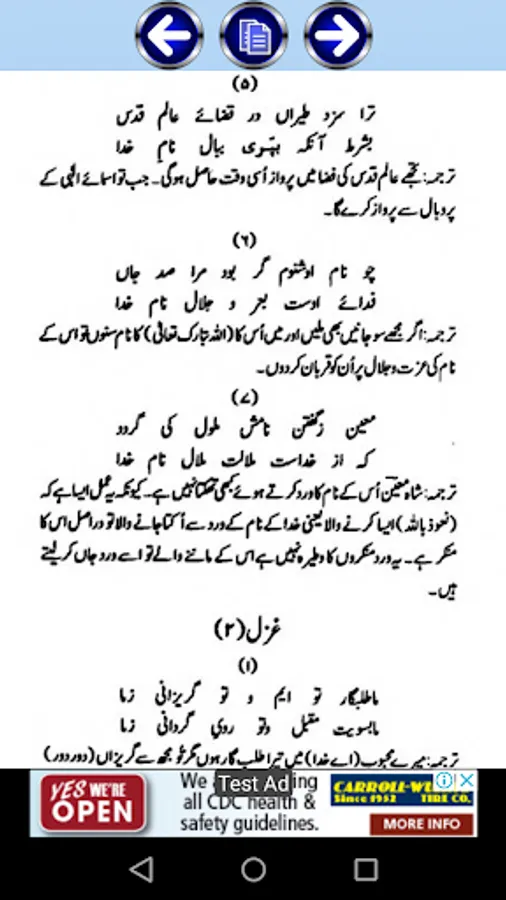 (۵)
ترا سزد طیراں در فضائے عالم قدس
بشرط آنکہ بپوی ببال نام خدا
ترجمہ: تجھے عالم قدس کی فضا میں پرواز اُسی وقت حاصل ہوگی۔ جب تو اسمائے الٰہی کے
پر و بال سے پرواز کرے گا۔
(۶)
چو نام او شنوم گر بود مرا صد جاں
فدائے اوست بعز و جلال نام خدا
ترجمہ: اگر مجھے سو جانیں بھی ملیں اور میں اُس کا (اللہ تبارک تعالیٰ) کا نام سنوں تو اس کے
نام کی عزت و جلال پر اُن کو قربان کردوں۔
(۷)
معین زگفتن نامش ملول کی گردد
کہ از خداست ملالت ملال نام خدا
ترجمہ: شاہ معین اُس کے نام کا ورد کرتے ہوئے کبھی تھکتا نہیں ہے۔ کیونکہ یہ عمل ایسا ہے کہ
(نعوذ باللہ) ایسا کرنے والا یعنی خدا کے نام کے ورد سے اُکتا جانے والا تو دراصل اس کا
منکر ہے۔ یہ ورد منکروں کا وطیرہ نہیں ہے اس کے ماننے والے تو اسے ورد جاں کر لیتے
ہیں۔
غزل (۲)
(۱)
ما طلبگار تو ایم و تو گریزانی زما
ما بسویت مقبل و تو روی گردانی زما
ترجمہ: میرے محبوب (اے خدا) میں تیرا طلب گار ہوں مگر تُو مجھ سے گریزاں (دور دور)
YES WE'RE OPEN
We
Test Ad
ing
all CDC health &
safety guidelines.
Since 1952 TIRE CO.
MORE INFO